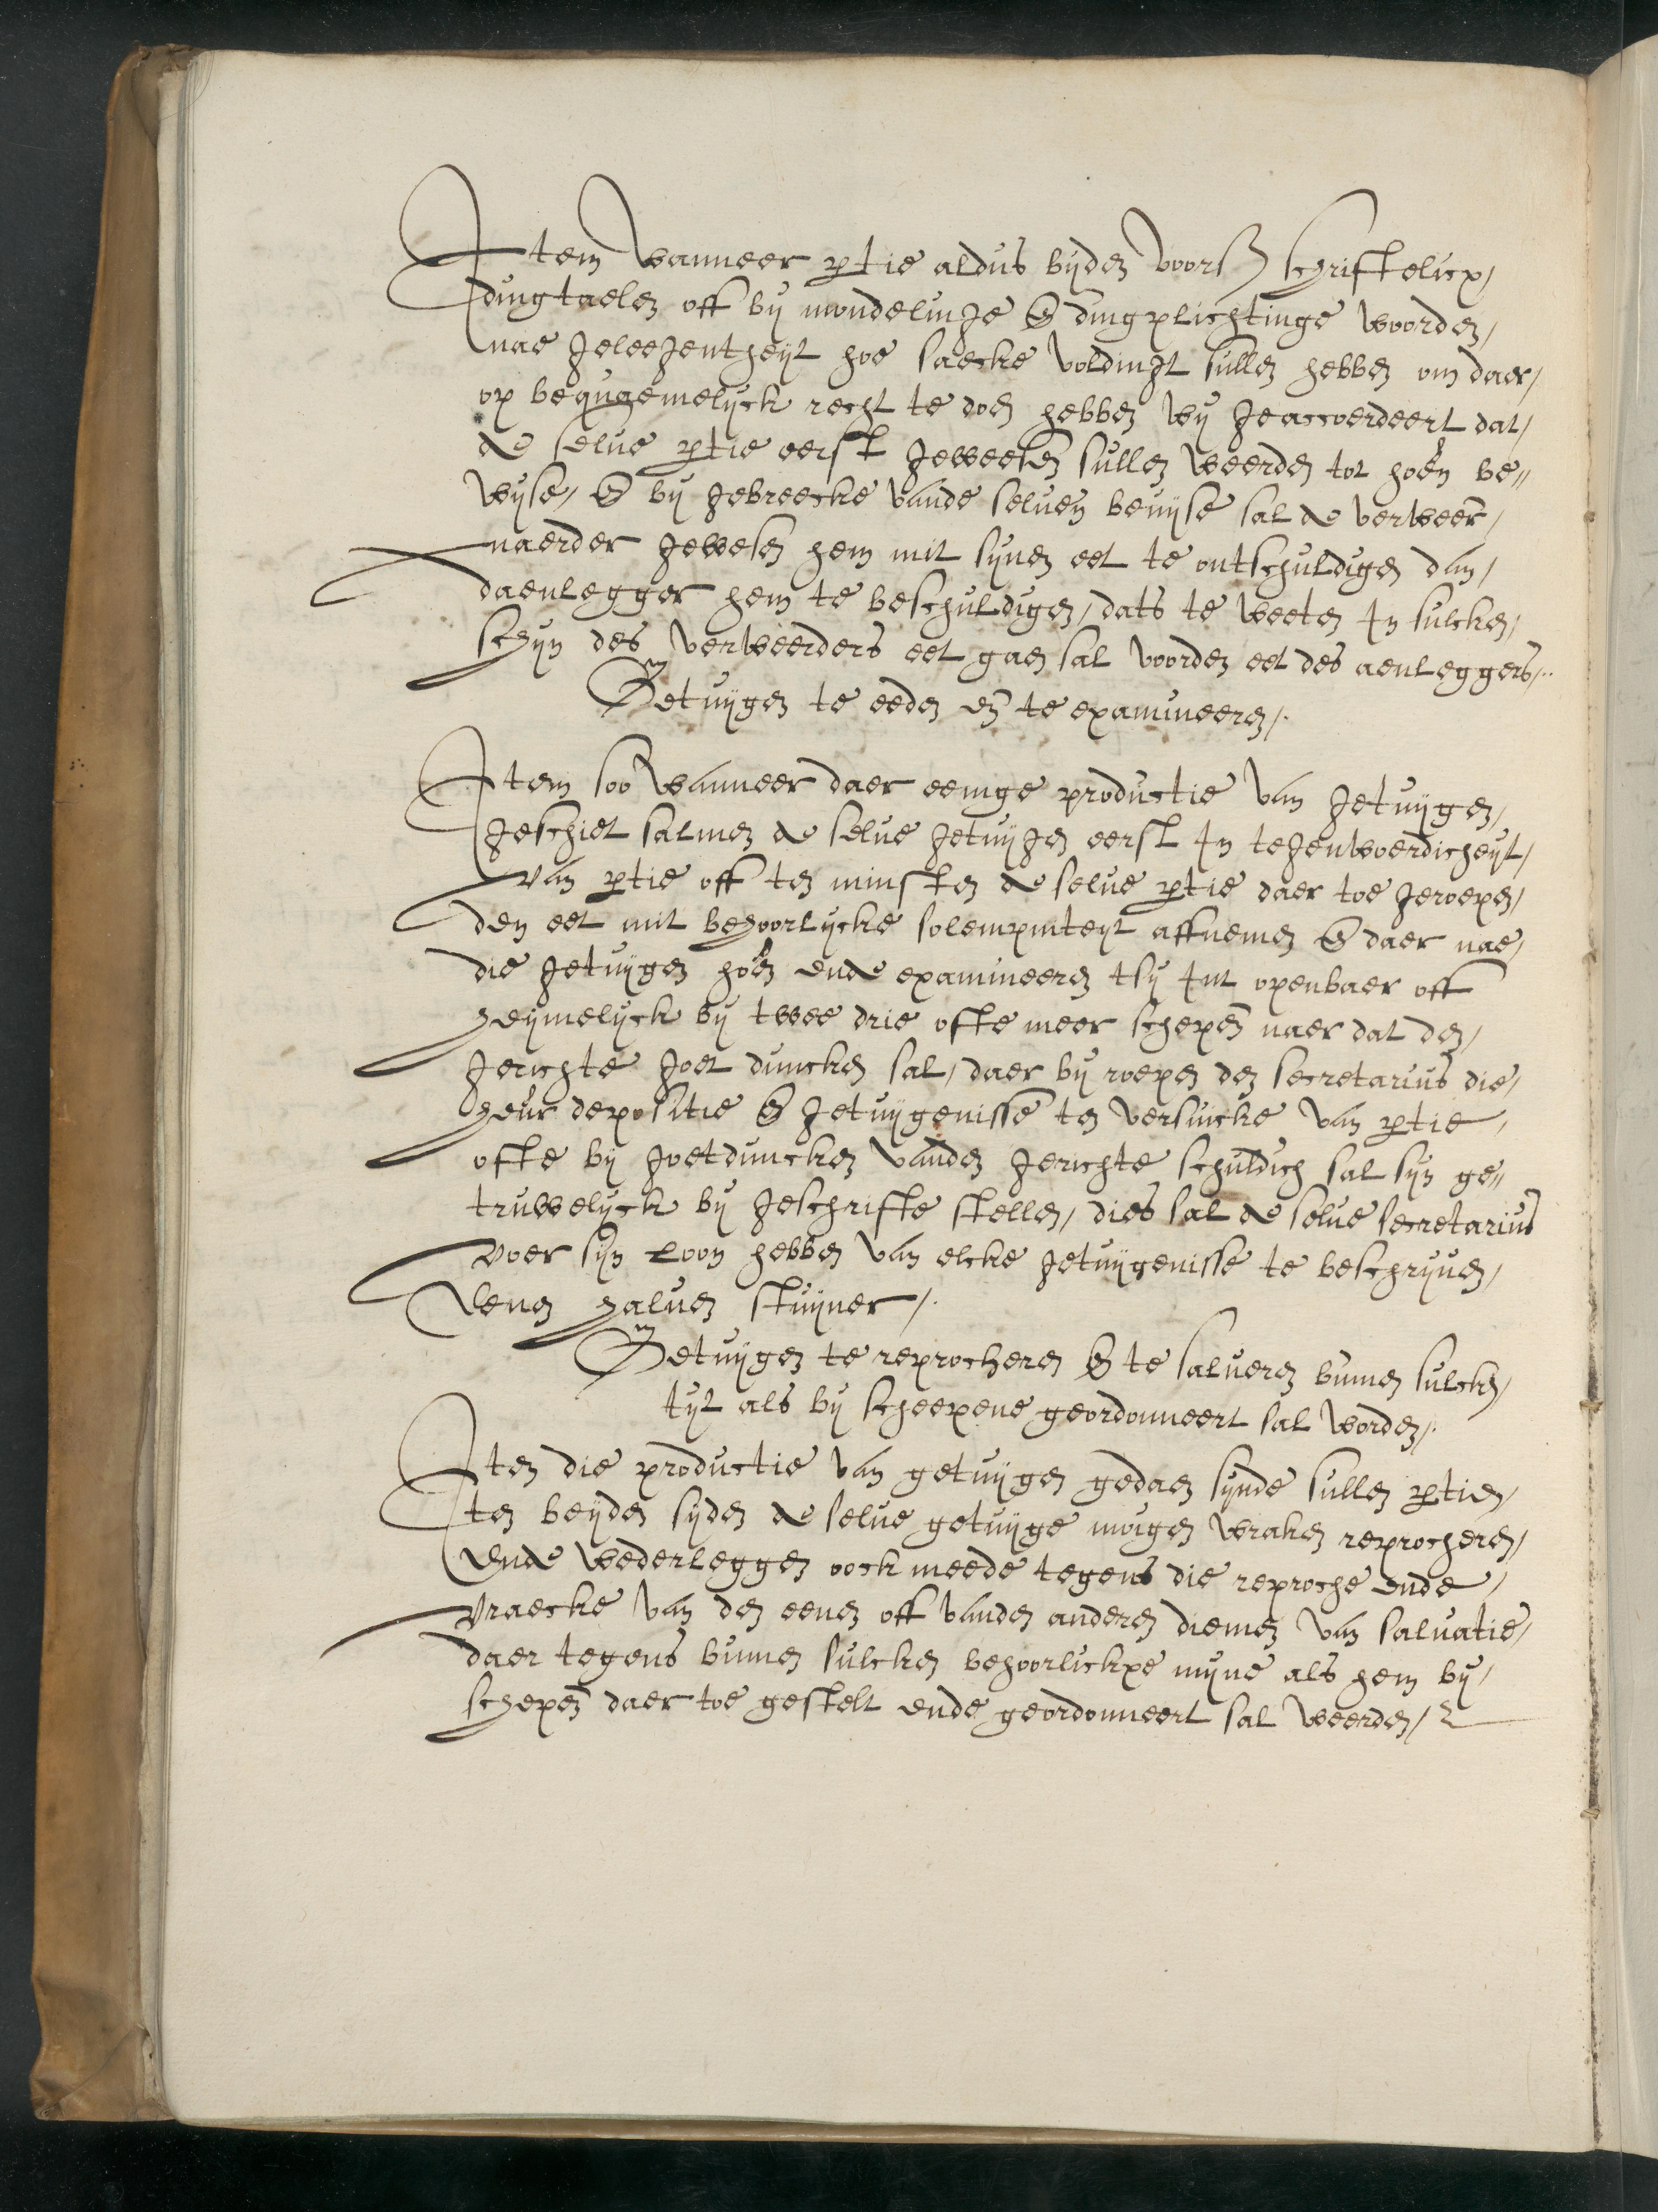 Item wanneer ptie aldus byden voors schriftelicx/
dingtaelen off by mondelinge & dingplichtinge woorden/
nae geleegentheyt hoe saecke voldingt sullen hebben om daer/
op bequgemelyck recht te doen hebben wy geaccoerdeert dat/
de selve ptie eerst geweesen sullen weerden tot hoen be//
wyse/ & by gebreecke vande selven bewyse sal de verweer/
naerder gewesen hem mit synen eet te ontschuldigen dan/
daenlegger hem te beschuldigen/ dats te weeten In sulcken/
schyn des verweerders eet gaen sal voorden eet des aenleggers/.
Getuygen te eeden en te examineeren/.
Item soo wanneer daer eenige productie van getuygen/
geschiet salmen de selve getuygen eerst In tegenwoerdicheyt/
van ptie off ten minsten de selve ptie daer toe geroepen/
den eet mit behoorlycke solempniteyt affnemen & daer nae/
die getuygen hoen ende examineeren tsy Int openbaer off
heymelyck by twee drie ofte meer schepen naer dat den/
gerichte goet duncken sal/ daer by roepen den secretarius die/
heur depositie & getuygenisse ten versuicke van ptie/
ofte by goetduncken vanden gerichte schuldich sal syn ge//
truwelyck by geschrifte stellen/ dies sal de selve secretarius
voer syn loon hebben van elcke getuygenisse te beschryven/
eenen halven stuyver/.
Getuygen te reprocheren & te salveren binnen sulcken/
tyt als by scheepene geordonneert sal worden/.
Iten die productie van getuygen gedaen synde sullen ptien/
ten beyden syden de selve getuyge mogen wraken reprocheren/
ende wederleggen oock meede tegens die reproche ende/
wraecke van den eenen off vanden anderen dienen van salvatie/
daer tegens binnen sulcken behoorlickxe myne als hem by/
schepen daer toe gestelt ende geordonneert sal weerden/